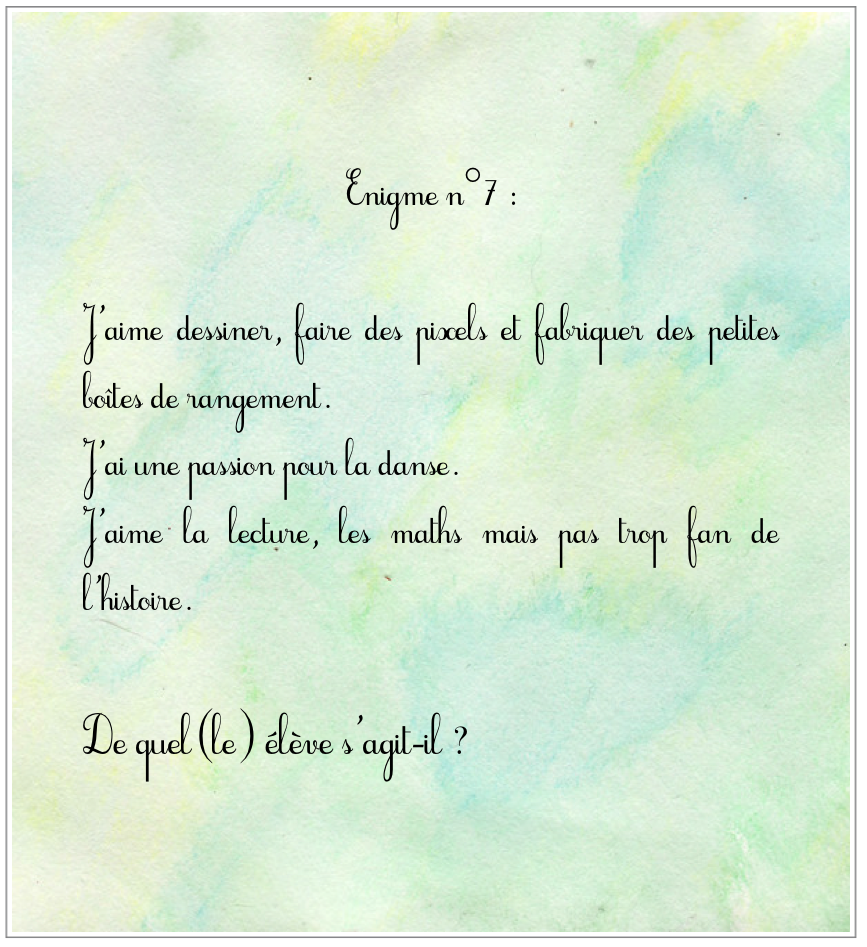 Enigme n°7 :
J'aime dessiner, faire des pixels et fabriquer des petites
boîtes de rangement.
J'ai une passion pour la danse.
J'aime la lecture, les maths mais pas trop fan de
l'histoire.
De quel(le) élève s'agit-il ?